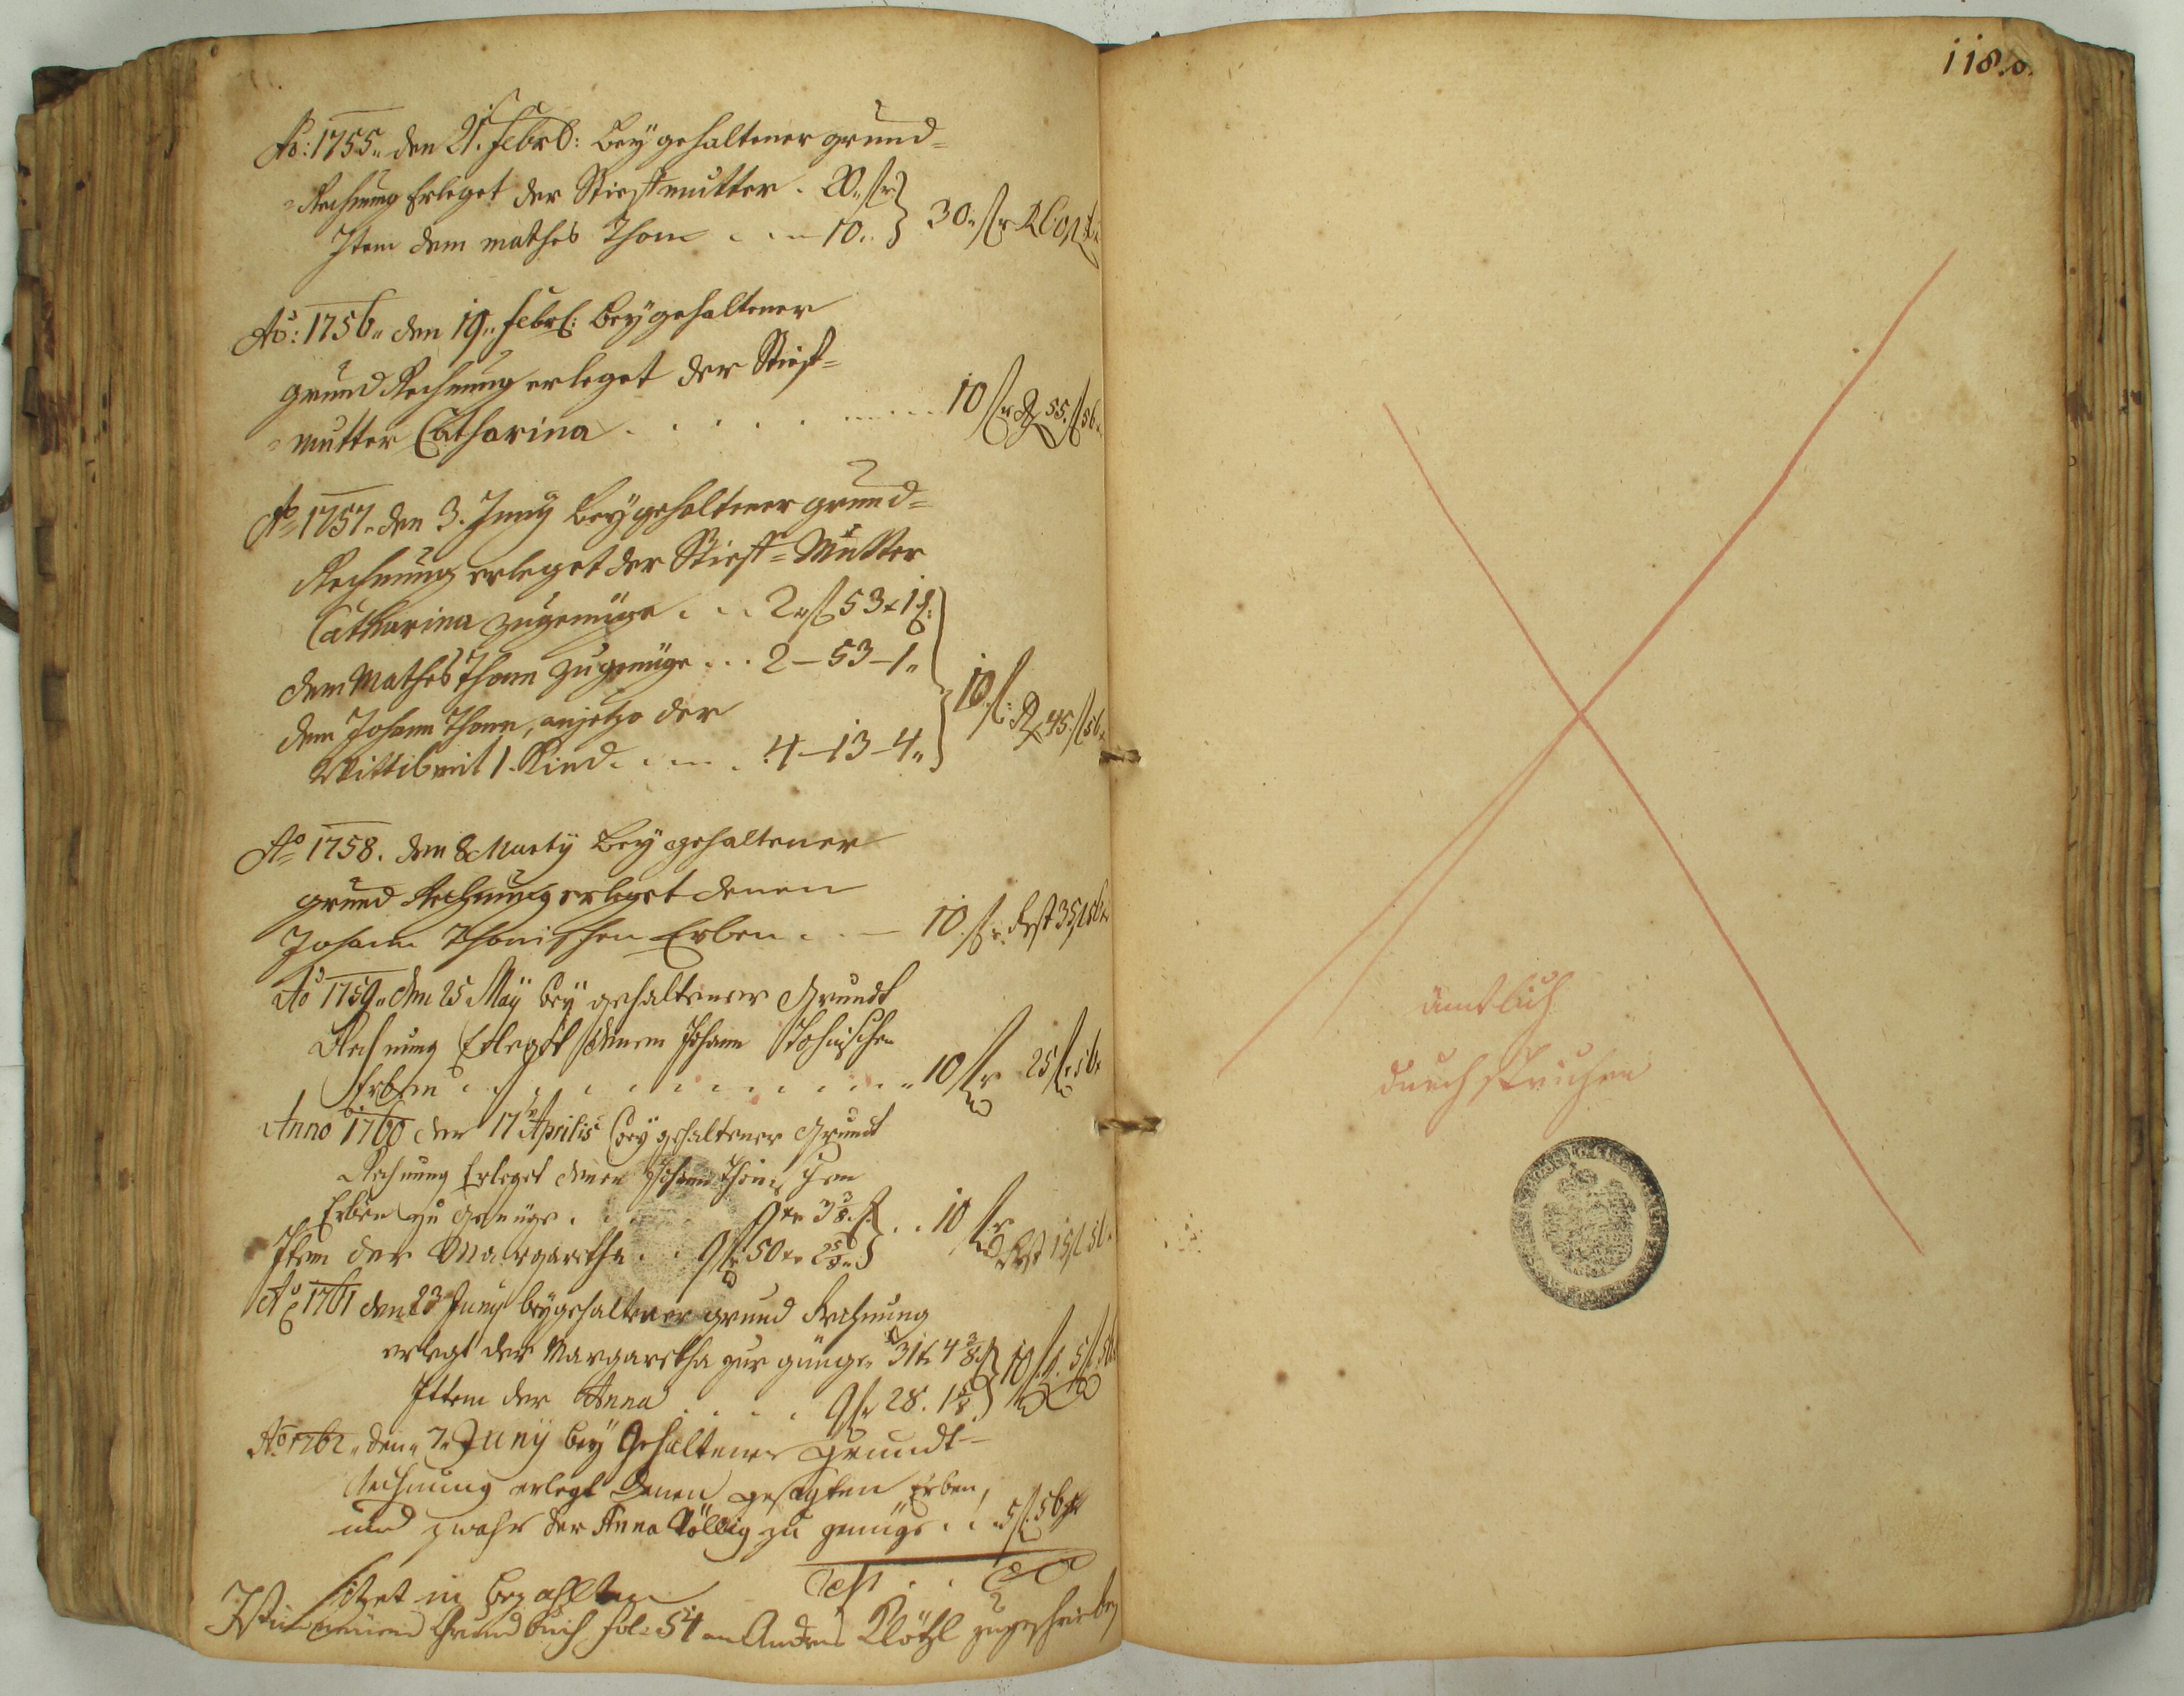 Ao: 1755. den 21. Febr: bey gehaltener grund=
Rechnung Erleget der Stieffmutter . 20 fl
Item dem mathes Thom . . . 10 . 30 fl
Ao: 1756. den 19. Febr: bey gehaltener
grund Rechnung erleget der Stieff=
mutter Catharina . . . . . 10 fl R 55 fl 56
Ao 1757. den 3. Juny bey gehaltener grund=
Rechnung erleget der Stieff=Mutter
Catharina zugenüge . . . 2 fl 53 x 1 d:
dem Mathes Thom zugenüge . . . 2 – 53 – 1
dem Johann Thom, anjetzo der
Wittib mit 1. Kind . . . . 4 – 13 – 4 10 fl: R 45 fl 56 x
Ao 1758. den 8 Marty bey gehaltener
grund Rechnung erleget denen
Johann Thomischen Erben . . – 10 fl Rest 35 fl 56 x
Ao 1759. den 25 May bey gehaltener Grundt
Rechnung Erlegt denen Johann
Erben . . . . . . . 10 fl 25 fl 56
Anno 1760 den 17 Aprilis bey gehaltener Grundt
Rechnung Erleget denen Johann Thomischen
Erben zu genüge . . . 9 xr 3 3/8 d . . 10 fl
Item der Margaretha . . 9 fl 50 xr 2 5/8 Rest 15 fl 56
Ao 1761 den 23 Juny bey gehaltener grund Rechnung
erlegt der Margaretha zur genüge 31 x 4 3/8 10 fl 5 fl 56
Ittem der Anna . . . . 9 fl 28. 1 5/8
Ao 1762 den 7. Juny bey Gehaltener grundt=
Rechnung erlegt denen gesagten Erben,
und zwahr der Anna Völlig zu genüge . . 5 fl 56 x
Rest . .
bezahlt
Ist im neuen Grund buch fol: 54 an Andres Klötzl zugeschrieben
118.
ämtlich
durchstrichen